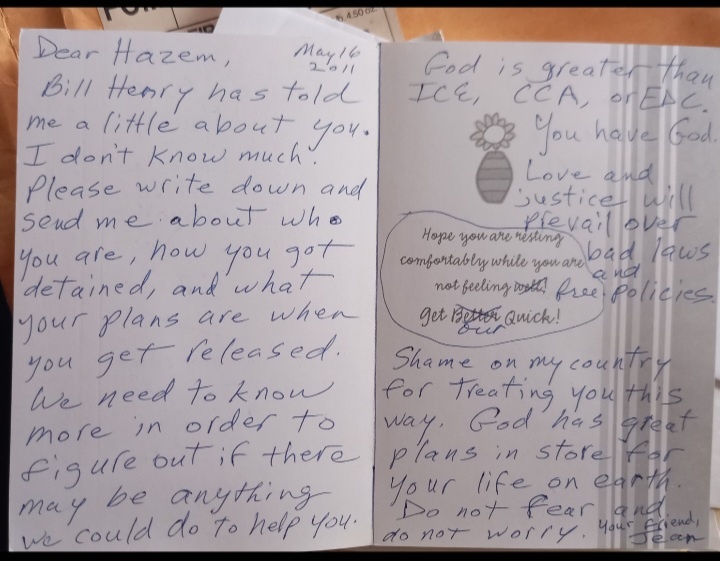 Dear Hazem,
May 16
2011
Bill Henry has told
me a little about you.
I don't know much.
Please write down and
send me about who
you are, how you got
detained, and what
your plans are when
you get released.
We need to know
more in order to
figure out if there
may be anything
we could do to help you.
God is greater than
ICE, CCA, or EDC.
You have God.
Love and
justice will
prevail over
bad laws
and
policies.
Hope you are resting
comfortably while you are
not feeling well!
free.
Get Better Quick!
out
Shame on my country
for treating you this
way. God has great
plans in store for
your life on earth.
Do not fear and
do not worry.
Your friend,
Jean
4.50 oz.